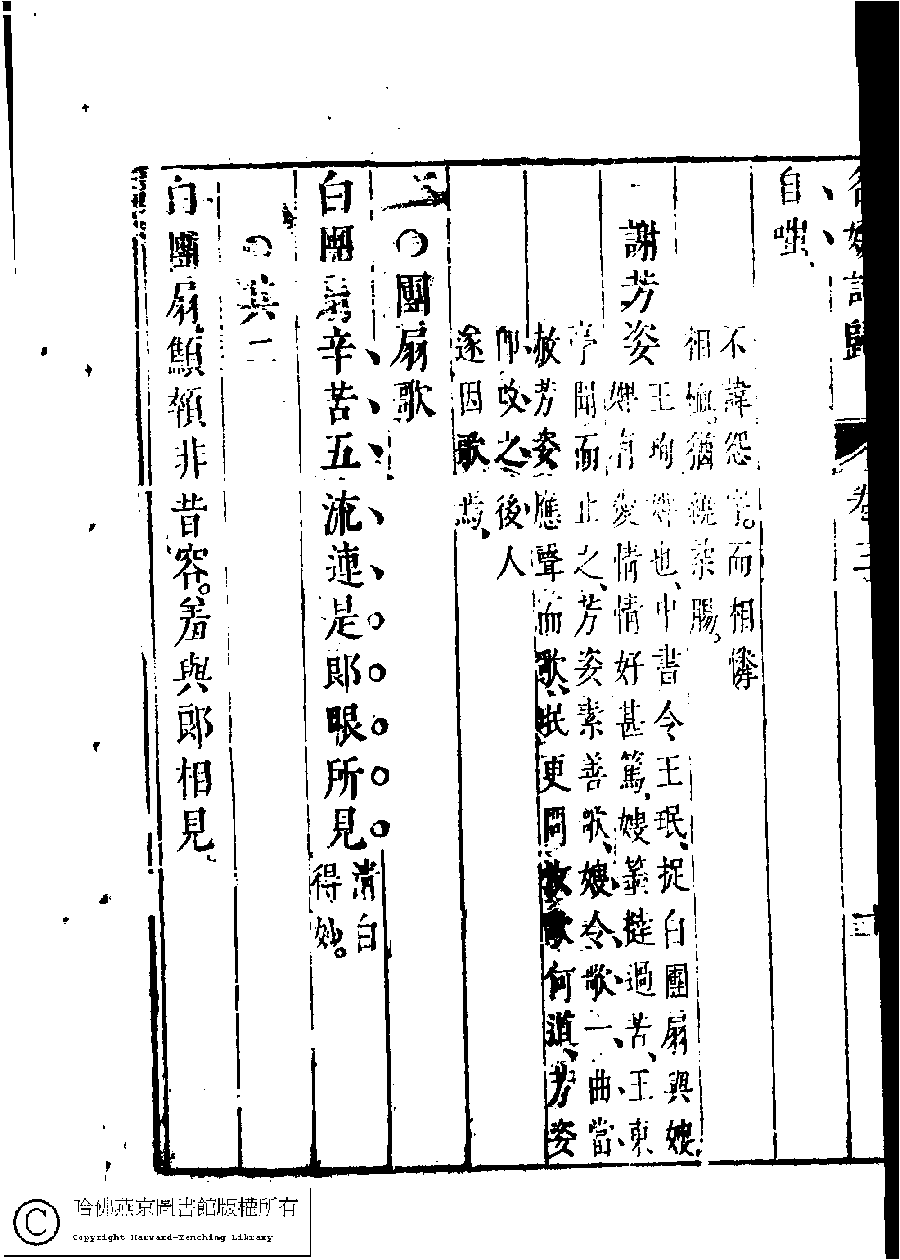 名媛詩歸 卷三
自嗤、
不諱怨字。而相憐
相恤。猶繞柔腸。
謝芳姿
王珣婢也、中書令王珉、捉白團扇與嫂
婢有愛情情好甚篤、嫂箠撻過苦、王東
亭聞而止之、芳姿素善歌、嫂令歌一曲當
赦芳姿應聲而歌、珉更問汝歌何道、芳姿
即改之後人
遂因歌焉、
○團扇歌
白團扇辛苦五流連是郎眼所見
清白
得妙。
○其二
白團扇顦顇非昔容。羞與郎相見、
哈佛燕京圖書館版權所有
Copyright Harvard-Yenching Library